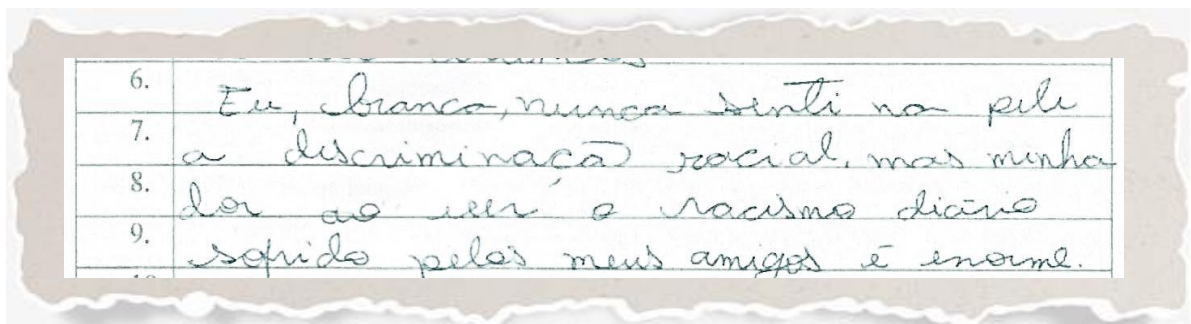 6. Eu, branca, nunca senti na pele
7. a discriminação racial, mas minha
8. dor ao ver o racismo diário
9. sofrido pelos meus amigos é enorme.